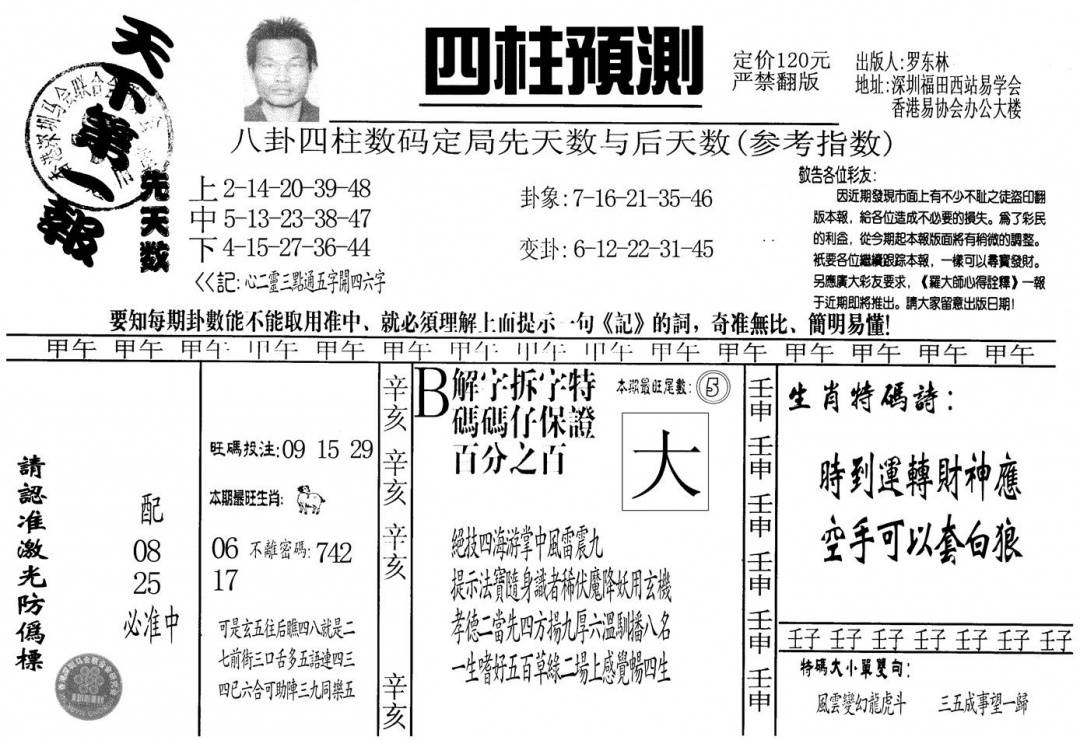 天下第一報
四柱預測
定价120元
严禁翻版
出版人:罗东林
地址:深圳福田西站易学会
香港易协会办公大楼
八卦四柱数码定局先天数与后天数(参考指数)
先天数
上2-14-20-39-48
中5-13-23-38-47
下4-15-27-36-44
卦象:7-16-21-35-46
变卦:6-12-22-31-45
<<記:心二靈三點通五字開四六字
敬告各位彩友:
因近期發現市面上有不少不耻之徒盜印翻
版本報,給各位造成不必要的損失。爲了彩民
的利益,從今期起本報版面將有稍微的調整。
衹要各位繼續跟踪本報,一樣可以尋寶發財。
另應廣大彩友要求,《羅大師心得詮釋》一報
于近期即將推出。請大家留意出版日期!
要知每期卦數能不能取用准中、就必須理解上面提示一句《記》的詞,奇准無比、簡明易懂!
甲午 甲午 甲午 甲午 甲午 甲午 甲午 甲午 甲午 甲午 甲午 甲午 甲午 甲午 甲午
請認准激光防僞標
配
08
25
必准中
旺碼投注:09 15 29
本期最旺生肖:
06 不離密碼:742
17
可是玄五往后瞧四八就是二
七前街三口舌多五語連四三
四已六合可助陣三九同樂五
辛亥 辛亥 辛亥 辛亥
B解字拆字特
碼碼仔保證
百分之百
本期最旺尾數:5
大
絕技四海游掌中風雷震九
提示法寶隨身識者稀伏魔降妖用玄機
孝德二當先四方揚九厚六溫馴播八名
一生嗜好五百草綠二場上感覺暢四生
壬申 壬申 壬申 壬申 壬申 壬申
生肖特碼詩:
時到運轉財神應
空手可以套白狼
壬子 壬子 壬子 壬子 壬子 壬子 壬子
特碼大小單雙句:
風雲變幻龍虎斗 三五成事望一歸